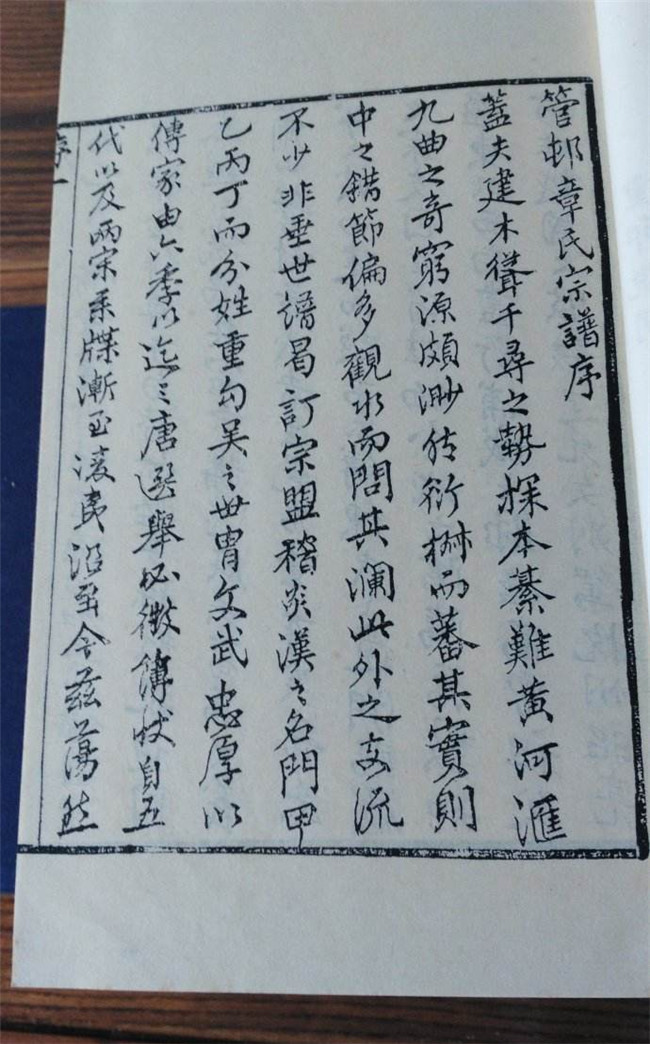 管邨章氏宗譜序
蓋夫建木聳千尋之勢探本綦難黄河滙
九曲之奇窮源頗渺然衍椒而蕃其實則
中之錯節偏多觀水而問其瀾此外之支流
不少非垂世譜曷訂宗盟稽炎漢之名門甲
乙丙丁而分姓重勾吴之世胄文武忠厚以
傳家由六季以迄三唐選舉必徵傳狀自五
代以及兩宋系牒漸至淩夷沿至今兹蕩然
序一